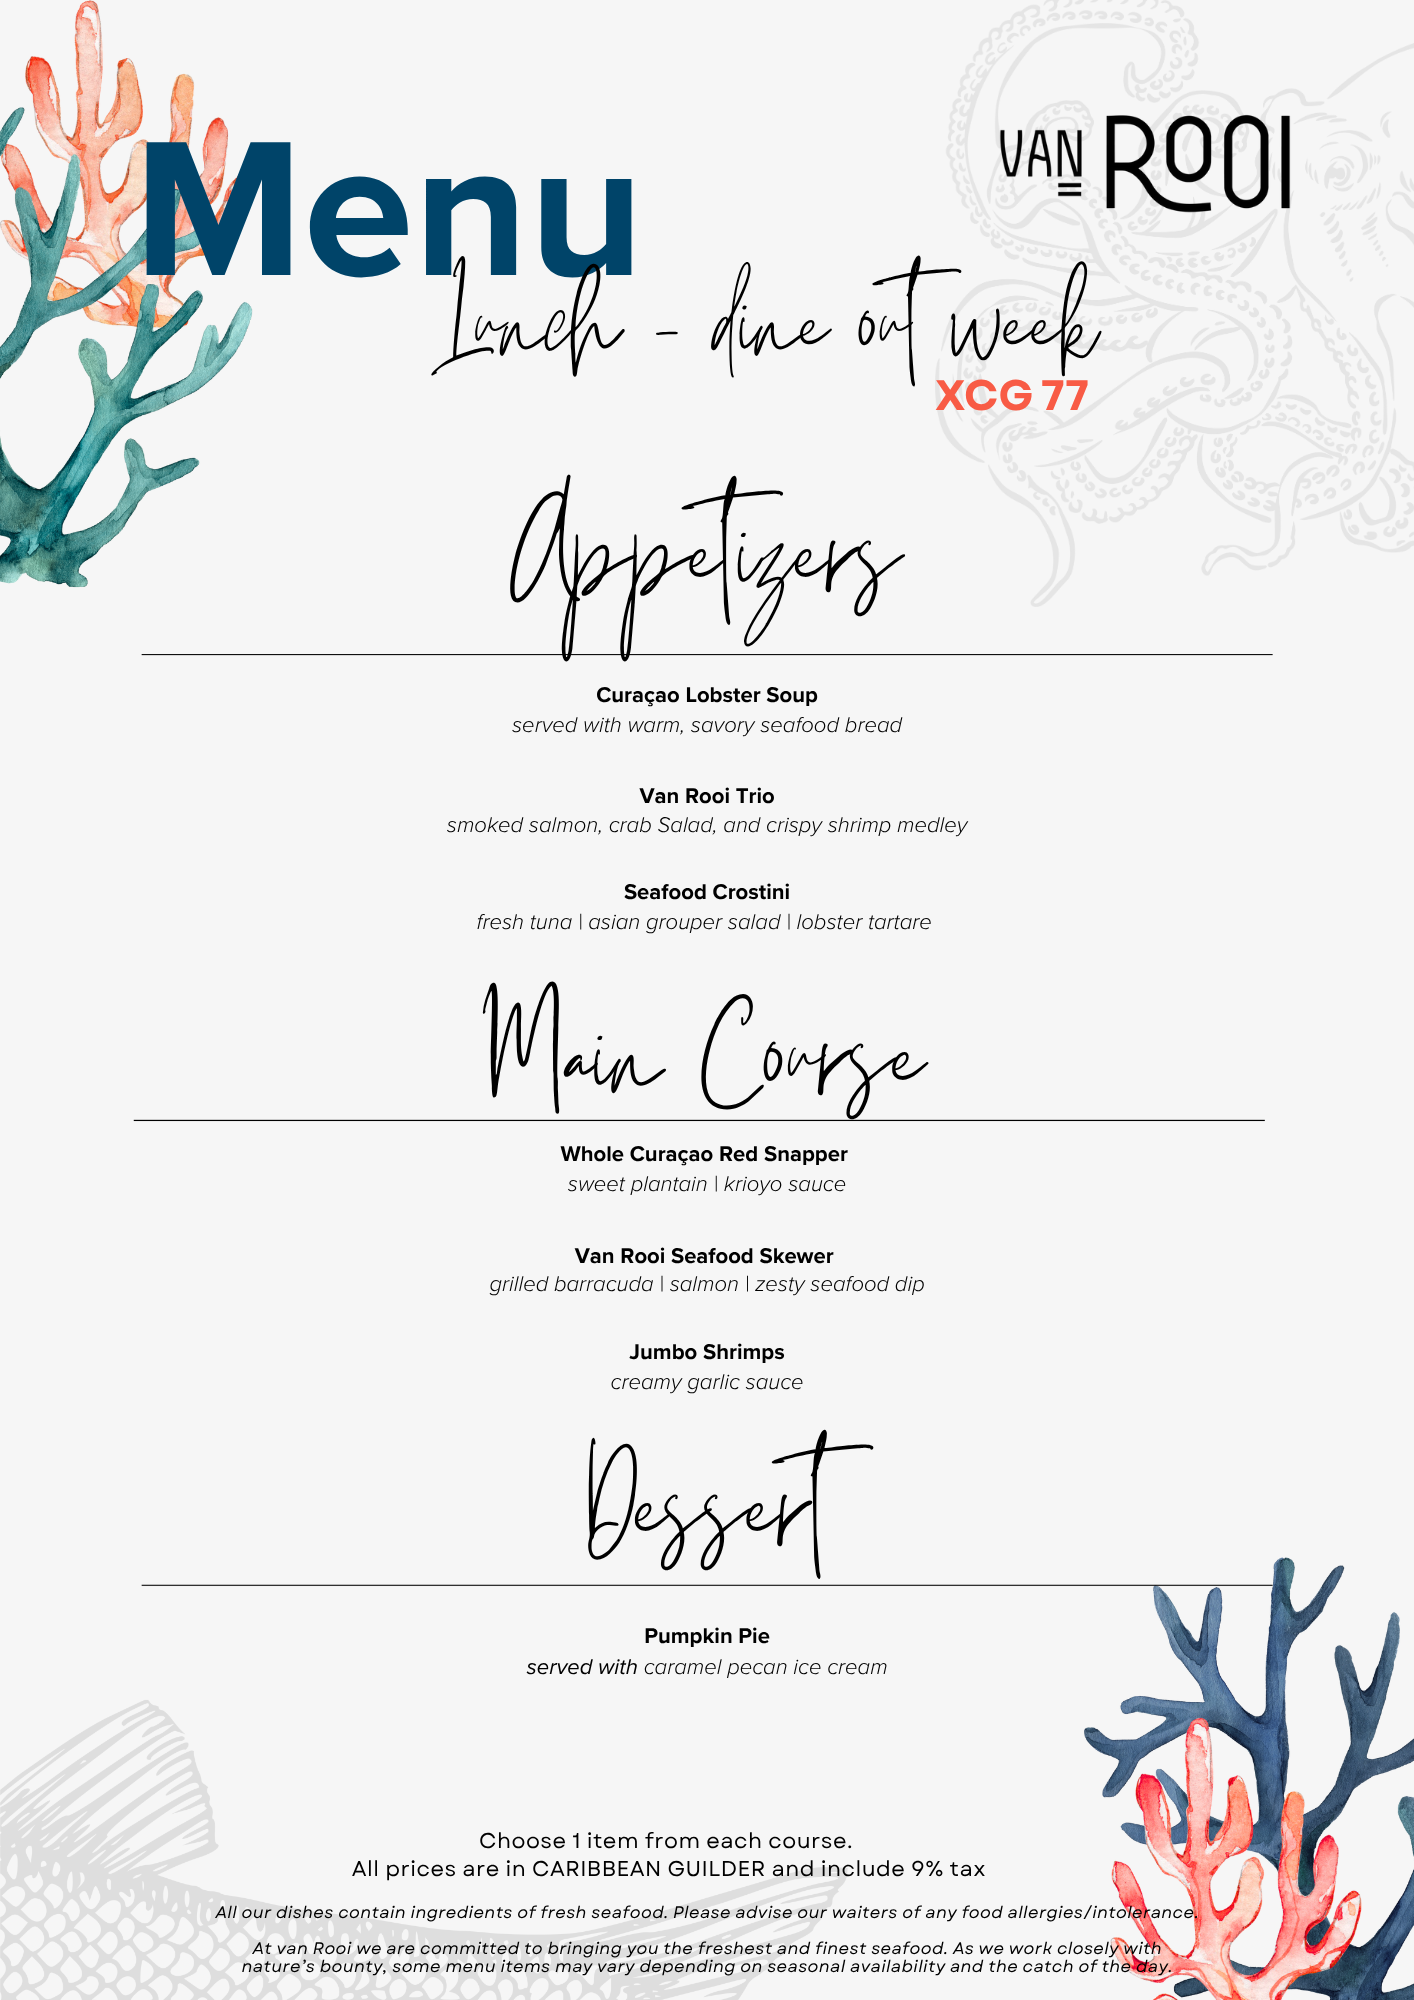 Menu
VAN ROOI
Lunch - dine out week
XCG 77
Appetizers
Curaçao Lobster Soup
served with warm, savory seafood bread
Van Rooi Trio
smoked salmon, crab Salad, and crispy shrimp medley
Seafood Crostini
fresh tuna | asian grouper salad | lobster tartare
Main Course
Whole Curaçao Red Snapper
sweet plantain | krioyo sauce
Van Rooi Seafood Skewer
grilled barracuda | salmon | zesty seafood dip
Jumbo Shrimps
creamy garlic sauce
Dessert
Pumpkin Pie
served with caramel pecan ice cream
Choose 1 item from each course.
All prices are in CARIBBEAN GUILDER and include 9% tax
All our dishes contain ingredients of fresh seafood. Please advise our waiters of any food allergies/intolerance.
At van Rooi we are committed to bringing you the freshest and finest seafood. As we work closely with
nature's bounty, some menu items may vary depending on seasonal availability and the catch of the day.